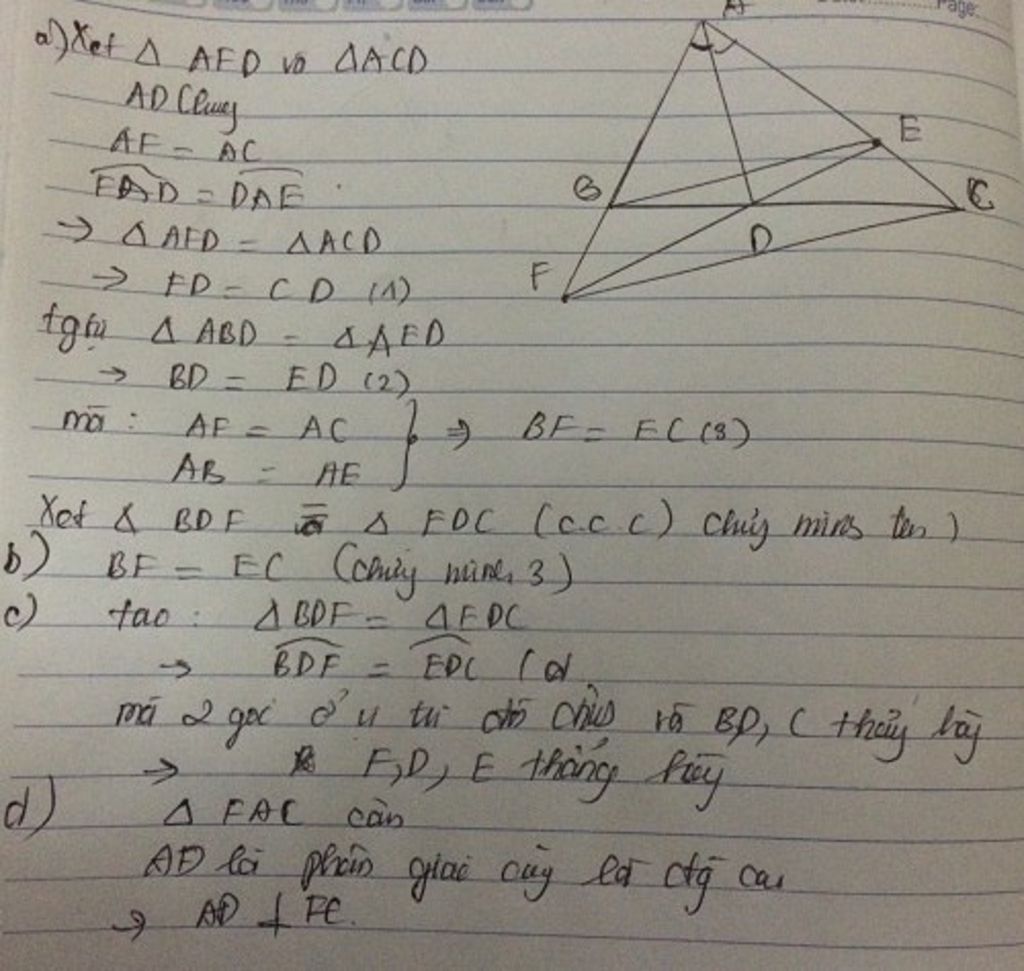 Page:
a) Xet Δ AFD và ΔACD
AD Chung
AF = AC
FAD = DAE
→ Δ AFD = ΔACD
→ FD = CD (1)
tg tự Δ ABD = ΔAED
→ BD = ED (2)
mà : AF = AC
AB = AE
⇒ BF = EC (3)
Xet Δ BDF = Δ EDC (c.c.c) chứng minh )
b) BF = EC (chứng minh 3)
c) tao : ΔBDF = ΔEDC
→ BDF = EDC (
mà 2 góc ở vị trí đối và BD, C thẳng hàng
→ F, D, E thẳng hàng
d) Δ FAC cân
AD là phân giác cũng là đg cao
→ AD ⊥ FC.
A
B
C
D
E
F